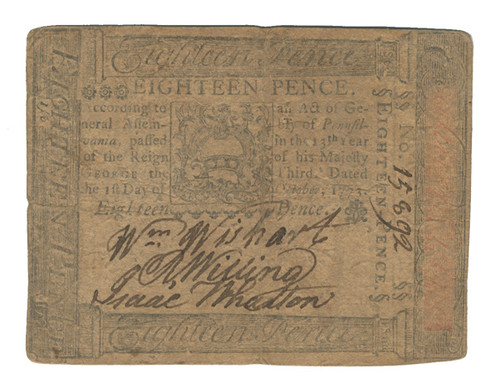 Eighteen Pence.
EIGHTEEN PENCE.
According to an Act of Ge-
neral Assem- bly of Pennsil-
vania, passed in the 13th Year
of the Reign of his Majesty
GEORGE the Third. Dated
the 1st Day of October, 1773.
Eighteen Pence.
Wm Wishart
Willing
Isaac Wharton
Eighteen Pence.
EIGHTEEN PENCE
No. 15892
EIGHTEEN PENCE.